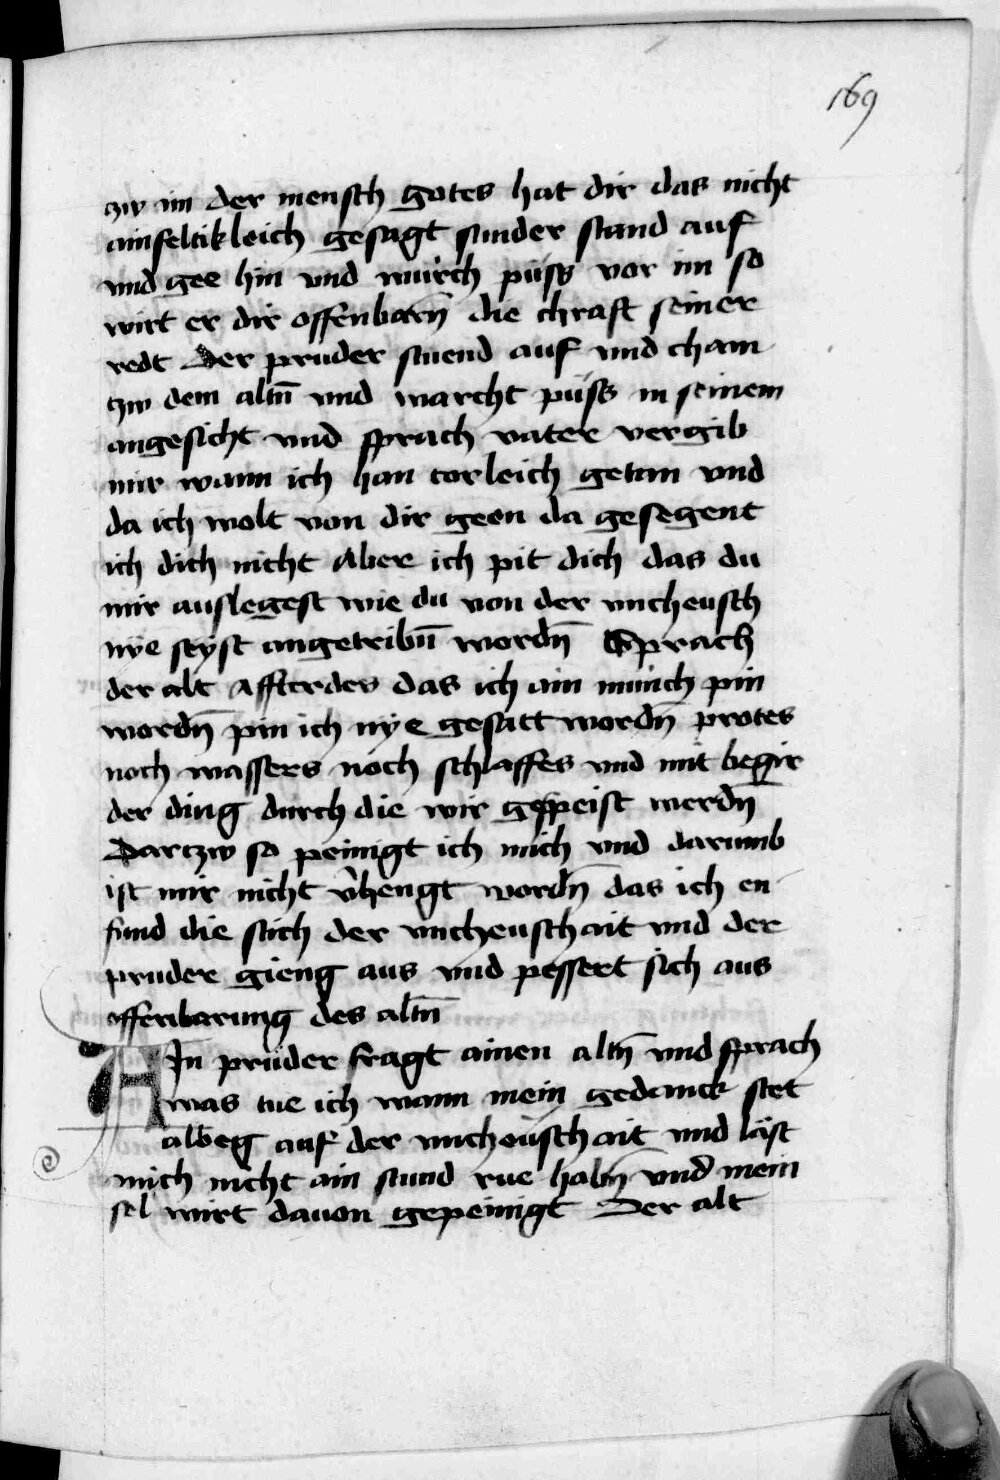 169
zw im der mensch gotes hat dir das nicht
ainfeltikleich gesagt sunder stand auf
vnd gee hin vnd würch püss vor im so
wirt er dir offenbarn̄ die chraft seiner
redt Der pruder stuend auf vnd cham
zw dem altn̄ vnd warcht püss in seinem
angesicht vnd sprach vater vergib
mir wann ich han torleich getan vnd
da ich wolt von dir geen da gesegent
ich dich nicht Aber ich pit dich das du
mir auslegest wie du von der vncheusch
nÿe seÿst angetribn̄ wordn̄ Sprach
der alt Affterdes das ich ain münich pin
wordn̄ pin ich nÿe gesatt wordn̄ protes
noch wassers noch schlaffes vnd mit begir
der ding durch die wir gespeist werdn̄
Darczw so peinigt ich mich vnd darumb
ist mir nicht v̉hengt wordn̄ das ich en
fund die stich der vncheuschait vnd der
pruder gieng aus vnd pessert sich aus
offenbarung des altn̄
AIn prüder fragt ainen altn̄ vnd sprach
was tue ich wann mein gedanck stet
albeg auf der vncheuschait vnd läst
mich nicht ain stund rue habn̄ vnd mein
sel wirt dauon gepeinigt Der alt